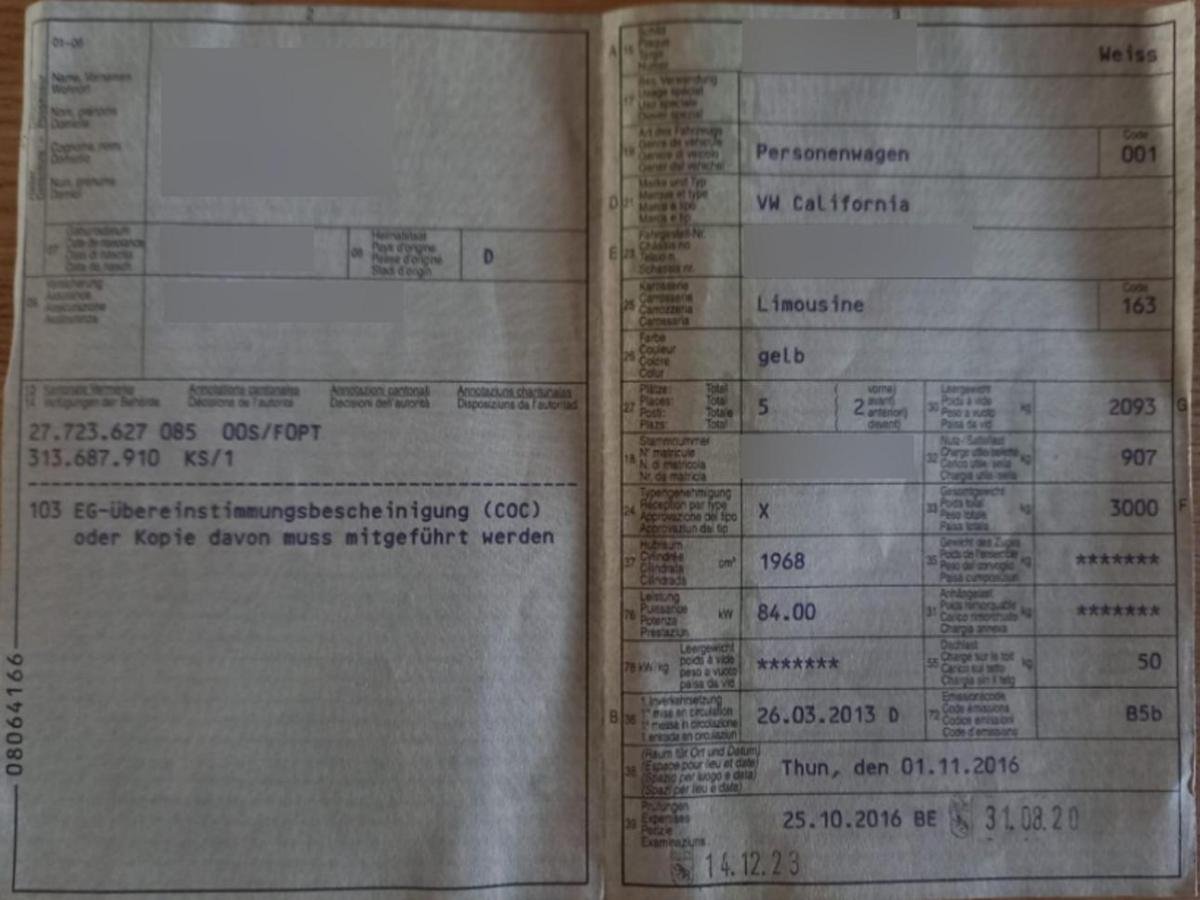 2
01-06
Name, Vornamen
Wohnort
Nom, prénoms
Domicile
Cognome, nomi
Domicilio
Num, prenums
Domicil
07
Geburtsdatum
Date de naissance
Data di nascita
Data da nasch.
08
Heimatstaat
Pays d'origine
Paese d'origine
Stadi d'origin
D
09
Versicherung
Assurance
Assicurazione
Kantonale Vermerke
Verfügungen der Behörde
Annotations cantonales
Décisions de l'autorité
Annotazioni cantonali
Decisioni dell'autorità
Annotaziuns chantunalas
Disposiziuns da l'autoritad
27.723.627 085 OOS/FOPT
313.687.910 KS/1
103 EG-Übereinstimmungsbescheinigung (COC)
oder Kopie davon muss mitgeführt werden
08064166
3
A 15
Schild
Plaque
Targa
Numer
Weiss
17
Bes. Verwendung
Usage spécial
Uso speciale
Diever spezial
19
Art des Fahrzeugs
Genre de véhicule
Genere di veicolo
Gener dal vehichel
Personenwagen
Code
001
D 21
Marke und Typ
Marque et type
Marca e tipo
Marca e tip
VW California
E 23
Fahrgestell-Nr.
Châssis no
Telaio n.
Schassis nr.
25
Karosserie
Carrosserie
Carrozzeria
Carossaria
Limousine
Code
163
26
Farbe
Couleur
Colore
Colur
gelb
27
Plätze: Total
Places: Total
Posti: Totale
Plazs: Total
5
( vorne)
2 avant)
anteriori)
( davant)
30
Leergewicht
Poids à vide
Peso a vuoto
Paisa da vid
kg
2093
G
18
Stammnummer
N° matricule
N. di matricola
Nr. da matricla
32
Nutz-/Sattellast
Charge utile/sellette
Carico utile/sella
Chargia utila/sella
kg
907
24
Typengenehmigung
Réception par type
Approvazione del tipo
Approvaziun dal tip
X
33
Gesamtgewicht
Poids total
Peso totale
Paisa totala
kg
3000
F
37
Hubraum
Cylindrée
Cilindrata
Cilindrada
cm³
1968
35
Gewicht des Zuges
Poids de l'ensemble
Peso del convoglio
Paisa cumposiziun
kg
*******
76
Leistung
Puissance
Potenza
Prestaziun
kW
84.00
31
Anhängelast
Poids remorquable
Carico rimorchiato
Chargia annexa
kg
*******
78 kW/kg
Leergewicht
poids à vide
peso a vuoto
paisa da vid
*******
55
Dachlast
Charge sur le toit
Carico sul tetto
Chargia sin il tetg
kg
50
B 36
1. Inverkehrsetzung
1re mise en circulation
1a messa in circolazione
1. entrada en circulaziun
26.03.2013 D
72
Emissionscode
Code émissions
Codice emissioni
Code d'emissiuns
B5b
38
(Raum für Ort und Datum)
(Espace pour lieu et date)
(Spazio per luogo e data)
(Spazi per lieu e data)
Thun, den 01.11.2016
39
Prüfungen
Expertises
Perizie
Examinaziuns
25.10.2016 BE 31.08.20
14.12.23